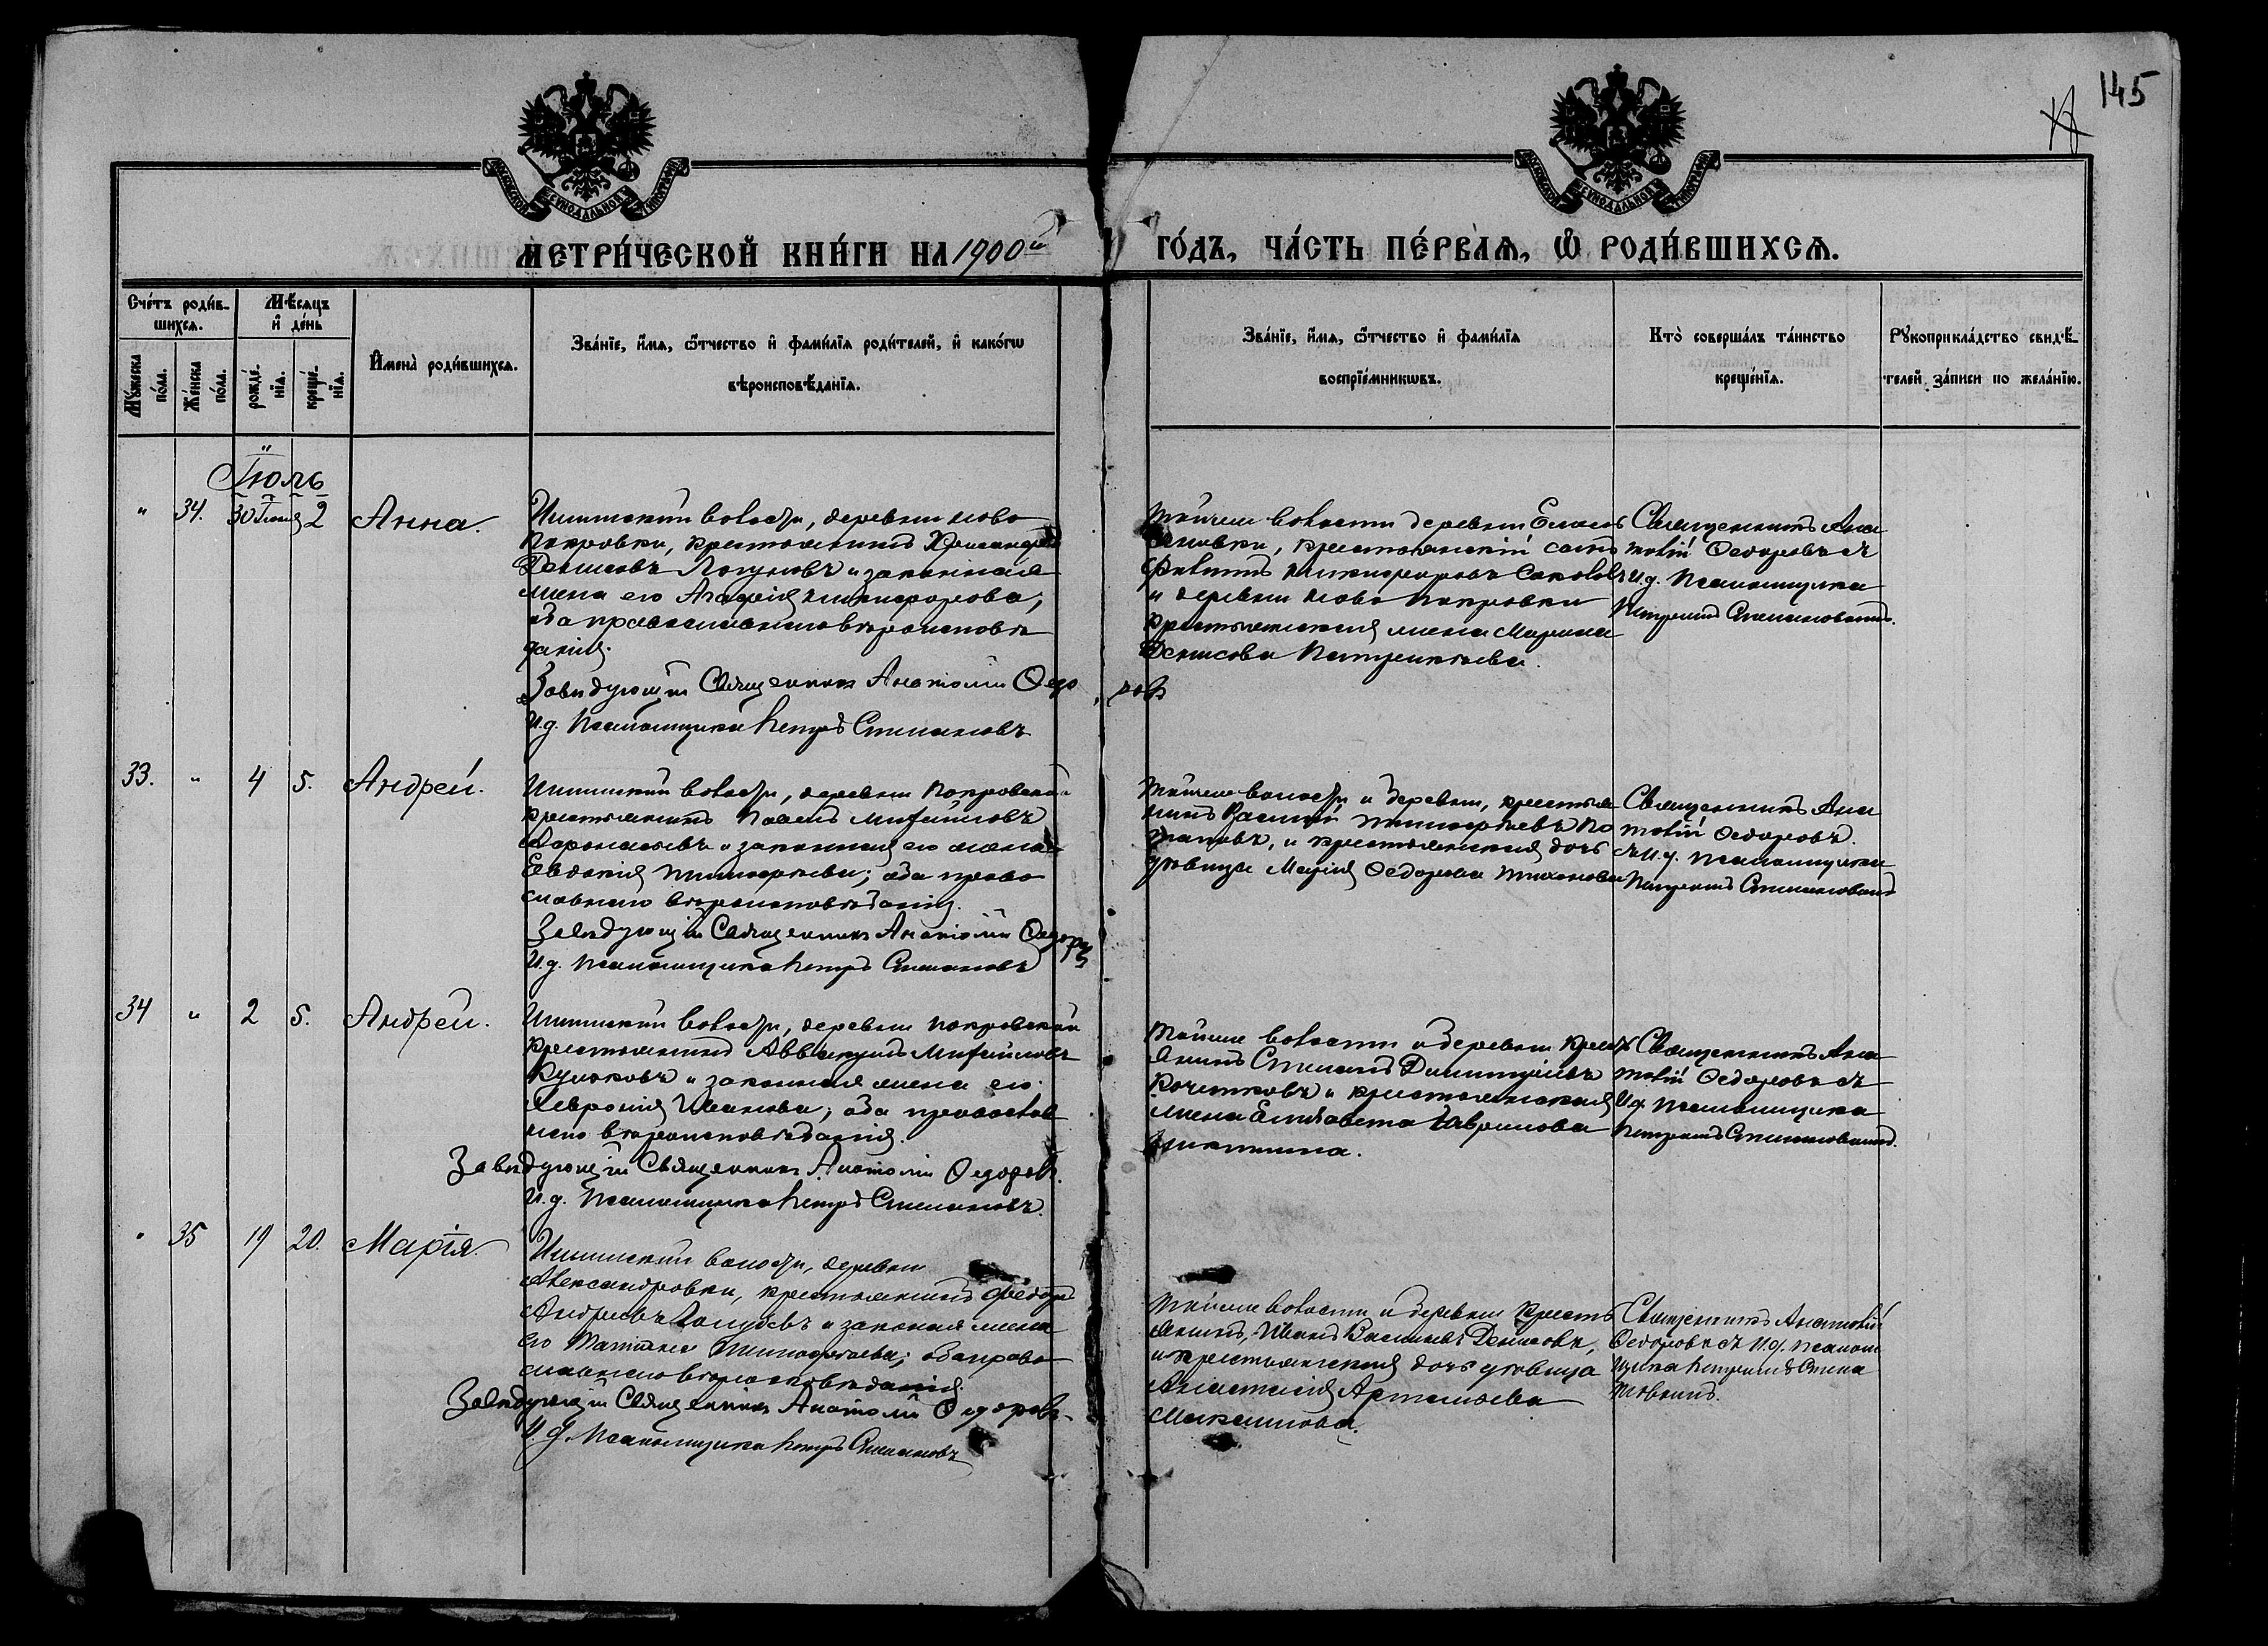 145
МОСКОВСКОЙ СѴНОДАЛЬНОЙ ТИПОГРАФІИ
МОСКОВСКОЙ СѴНОДАЛЬНОЙ ТИПОГРАФІИ
МЕТРИ́ЧЕСКОЙ КНИ́ГИ НА 1900й
ГО́ДЪ, ЧА́СТЬ ПЕ́РВАѦ, Ѽ РОДИ́ВШИХСѦ.
Сче́тъ роди́в-
шихсѧ.
Мѣ́сѧцъ
и҆ де́нь
Мꙋ́жеска
по́ла.
Же́нска
по́ла.
рожде́-
нїѧ.
креще́-
нїѧ.
И҆мена̀ роди́вшихсѧ.
Зва́нїе, и҆́мѧ, ѻ҆́тчество и҆ фами́лїѧ роди́телей, и҆ како́гѡ
вѣроисповѣ́данїѧ.
Зва́нїе, и҆́мѧ, ѻ҆́тчество и҆ фами́лїѧ
воспрїе́мникѡвъ.
Кто̀ соверша́лъ та́инство
креще́нїѧ.
Рꙋкоприкла́дство свидѣ́-
телей за́писи по жела́нїю.
Іюль
" 34. 30 Іюня 2 Анна.
волости, деревни Ново
Покровки, крестьянинъ
Денисовъ Логуновъ и законная
жена его Агафія Никифорова,
оба православнаго вѣроисповѣ
данія.
Завѣдующій Священникъ Анатолій Ѳедо
ровъ
И.д. Псаломщика Петръ Степановъ
Тойже волости деревни
крестьянскій сынъ
Филиппъ Никифоровъ Соколовъ
и деревни Ново Покровки
крестьянская жена Марина
Денисова
Священникъ Ана
толій Ѳедоровъ съ
И.д. Псаломщика
Петромъ Степановымъ.
33. " 4 5. Андрей.
волости, деревни Покровской
крестьянинъ Павелъ Михайловъ
Аѳонасьевъ и законная его жена
Евдокія Тимоѳѣева; оба право
славнаго вѣроисповѣданія.
Завѣдующій Священникъ Анатолій Ѳедоровъ
И.д. Псаломщика Петръ Степановъ
Тойже волости и деревни, крестья
нинъ Василій Тимоѳѣевъ По
таповъ, и крестьянская дочь
дѣвица Марія Ѳедорова Тихонова
Священникъ Ана
толій Ѳедоровъ
съ И.д. Псаломщика
Петромъ Степановымъ
34 " 2 5. Андрей.
волости, деревни Покровской
крестьянинъ Аввакумъ Михайловъ
Куликовъ и законная жена его
Хевронія Иванова; оба православ
наго вѣроисповѣданія.
Завѣдующій Священникъ Анатолій Ѳедоровъ.
И.д. Псаломщика Петръ Степановъ.
Тойже волости и деревни крест
янинъ Степанъ Димитріевъ
Кочетковъ и крестьянская
жена Елизавета Гаврилова
Никитина.
Священникъ Ана
толій Ѳедоровъ съ
И.д. Псаломщика
Петромъ Степановымъ.
" 35 19 20. Марія.
волости, деревни
Александровки, крестьянинъ Ѳедоръ
Андреевъ и законная жена
его Татіана Тимоѳѣева; оба право
славнаго вѣроисповѣданія.
Завѣдующій Священникъ Анатолій Ѳедоровъ.
И.д. Псаломщика Петръ Степановъ
Тойже волости и деревни крестъ
янинъ, Иванъ Васильевъ Денисовъ,
и крестьянская дочь дѣвица
Анастасія Артемьева
Максимова.
Священникъ Анатолій
Ѳедоровъ съ И.д. Псалом
щика Петромъ Степа
новымъ.